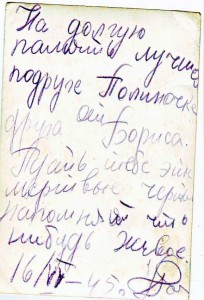 На долгую
память лучшей
подруге Полиночке
друга от Бориса.
Пусть тебе эти
мертвые черты
напомнят что
нибудь живое.
16/VI-45г.